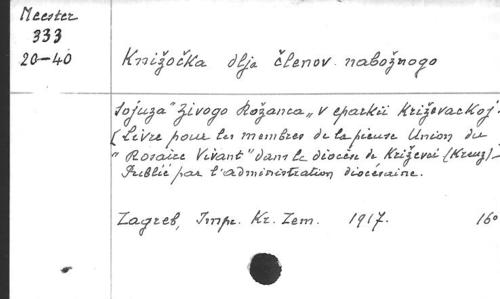 Meester
333
20-40
Knižočka dlja členov nabožnogo
sojuza "Živogo Rožanca„ v eparkii Križevackoj.
[Livre pour les membres de la pieuse Union du
"Rosaire Vivant" dans le diocèse de Križevci (Kreuz)-
Publié par l'administration diocésaine.
Zagreb, Impr. Kr. Zem. 1917. 16º